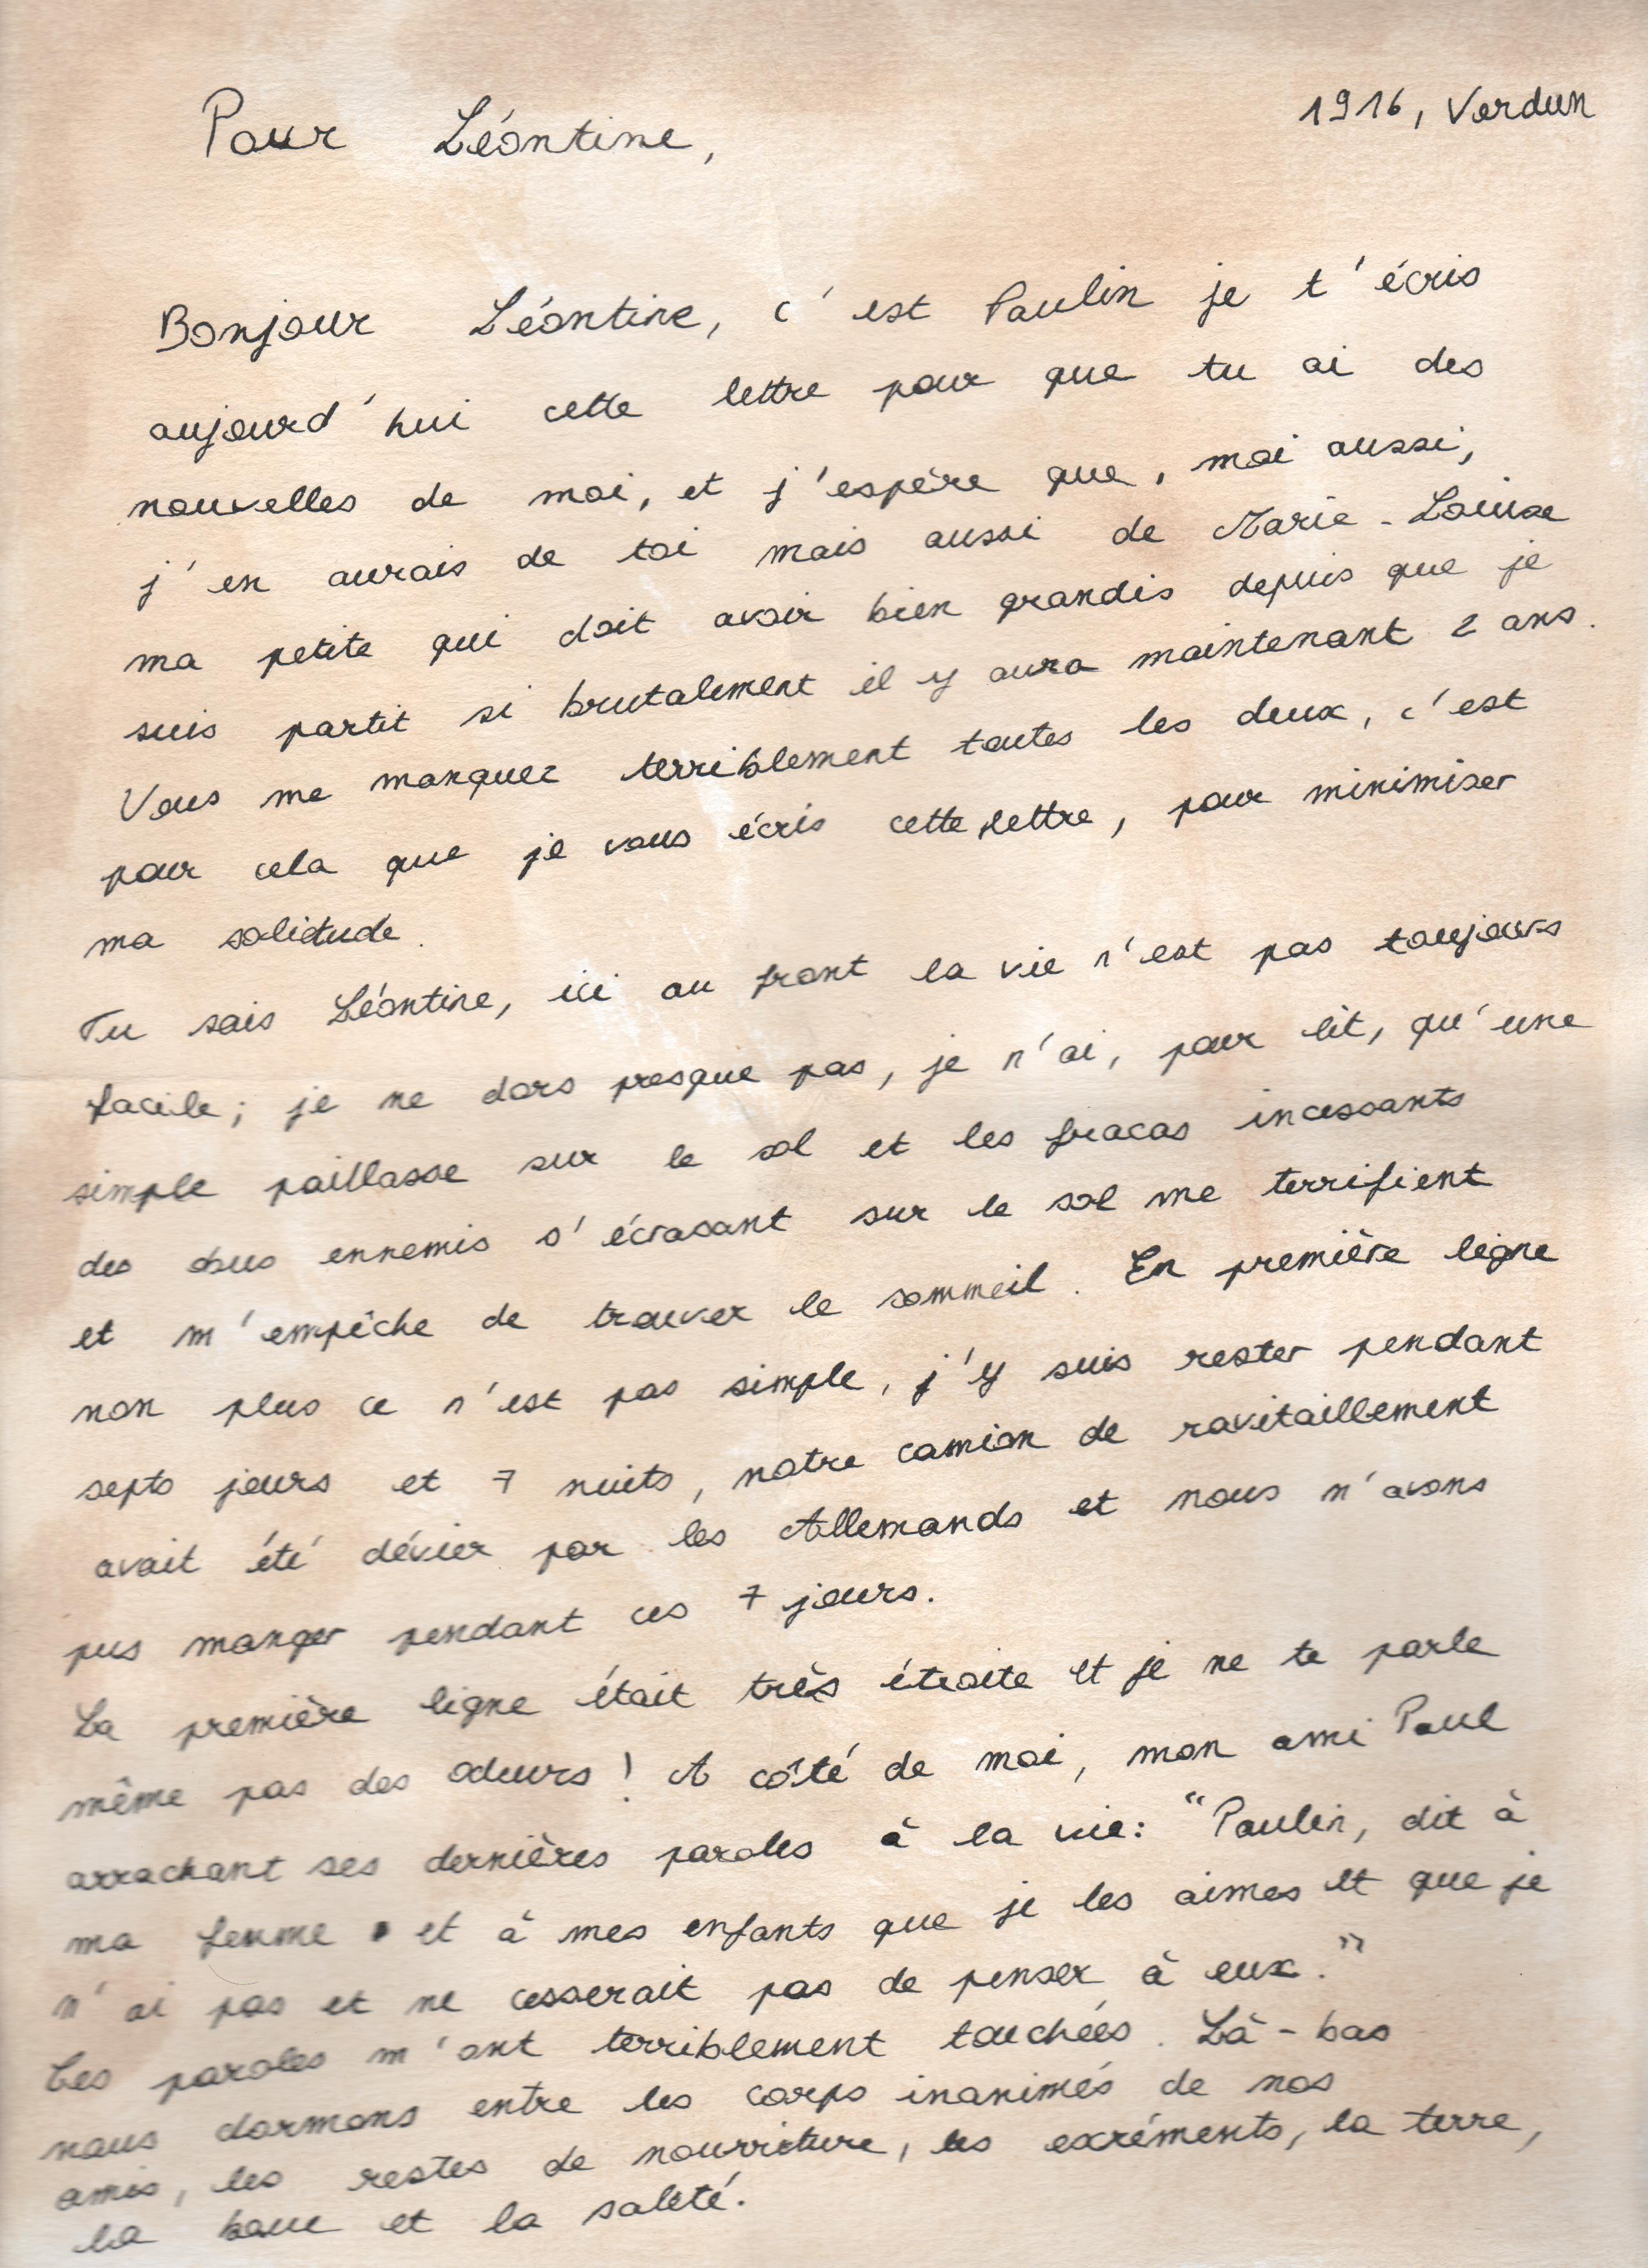 1916, Verdun
Pour Léontine,
Bonjour Léontine, c'est Paulin je t'écris
aujourd'hui cette lettre pour que tu ai des
nouvelles de moi, et j'espère que, moi aussi,
j'en aurais de toi mais aussi de Marie-Louise
ma petite qui doit avoir bien grandis depuis que je
suis partit si brutalement il y aura maintenant 2 ans.
Vous me manquez terriblement toutes les deux, c'est
pour cela que je vous écris cette lettre, pour minimiser
ma solitude.
Tu sais Léontine, ici au front la vie n'est pas toujours
facile; je ne dors presque pas, je n'ai, pour lit, qu'une
simple paillasse sur le sol et les fracas incessants
des obus ennemis s'écrasant sur le sol me terrifient
et m'empêche de trouver le sommeil. En première ligne
non plus ce n'est pas simple, j'y suis rester pendant
septs jours et 7 nuits, notre camion de ravitaillement
avait été dévier par les Allemands et nous n'avons
pus manger pendant ces 7 jours.
La première ligne était très étroite et je ne te parle
même pas des odeurs ! A côté de moi, mon ami Paul
arrachant ses dernières paroles à la vie: "Paulin, dit à
ma femme et à mes enfants que je les aimes et que je
n'ai pas et ne cesserait pas de penser à eux."
Ces paroles m'ont terriblement touchées. Là-bas
nous dormons entre les corps inanimés de nos
amis, les restes de nourriture, les excréments, la terre,
la boue et la saleté.